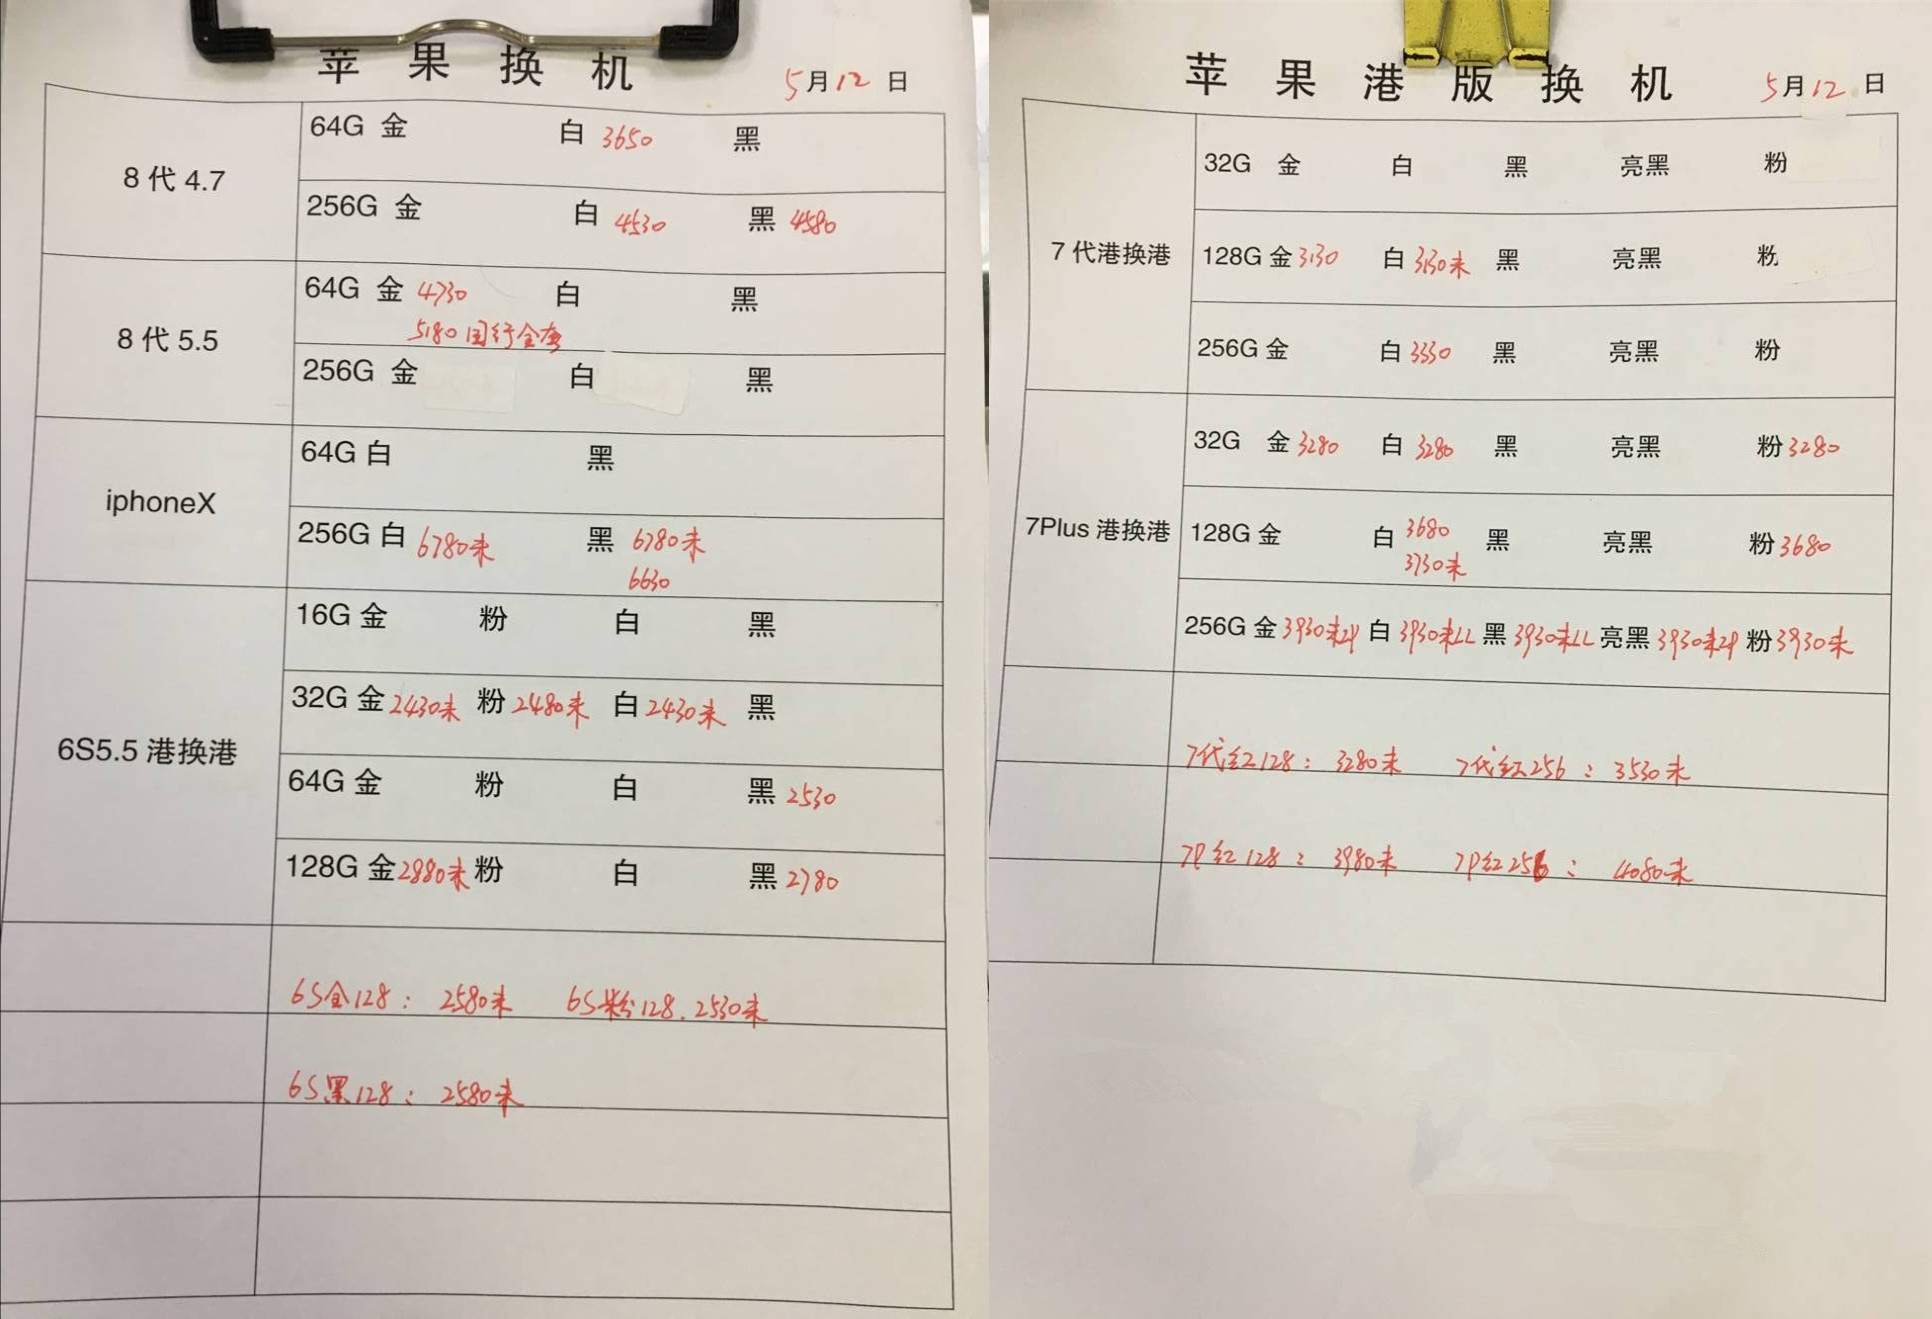 苹果换机 5月12日
8代4.7
64G 金 白 3650 黑
256G 金 白 4530 黑 4580
8代5.5
64G 金 4730 白 黑
5180国行全套
256G 金 白 黑
iphoneX
64G 白 黑
256G 白 6780未 黑 6780未
6630
6S5.5港换港
16G 金 粉 白 黑
32G 金 2430未 粉 2480未 白 2430未 黑
64G 金 粉 白 黑 2530
128G 金 2880未 粉 白 黑 2780
6S金128: 2580未 6S粉128. 2530未
6S黑128: 2580未
苹果港版换机 5月12日
7代港换港
32G 金 白 黑 亮黑 粉
128G 金 3130 白 3130未 黑 亮黑 粉
256G 金 白 3330 黑 亮黑 粉
7Plus港换港
32G 金 3280 白 3280 黑 亮黑 粉 3280
128G 金 白 3680 黑 亮黑 粉 3680
3730未
256G 金 3930未ZP 白 3930未LL 黑 3930未LL 亮黑 3930未ZP 粉 3930未
7代红128: 3280未 7代红256: 3530未
7P红128: 3980未 7P红256: 4080未